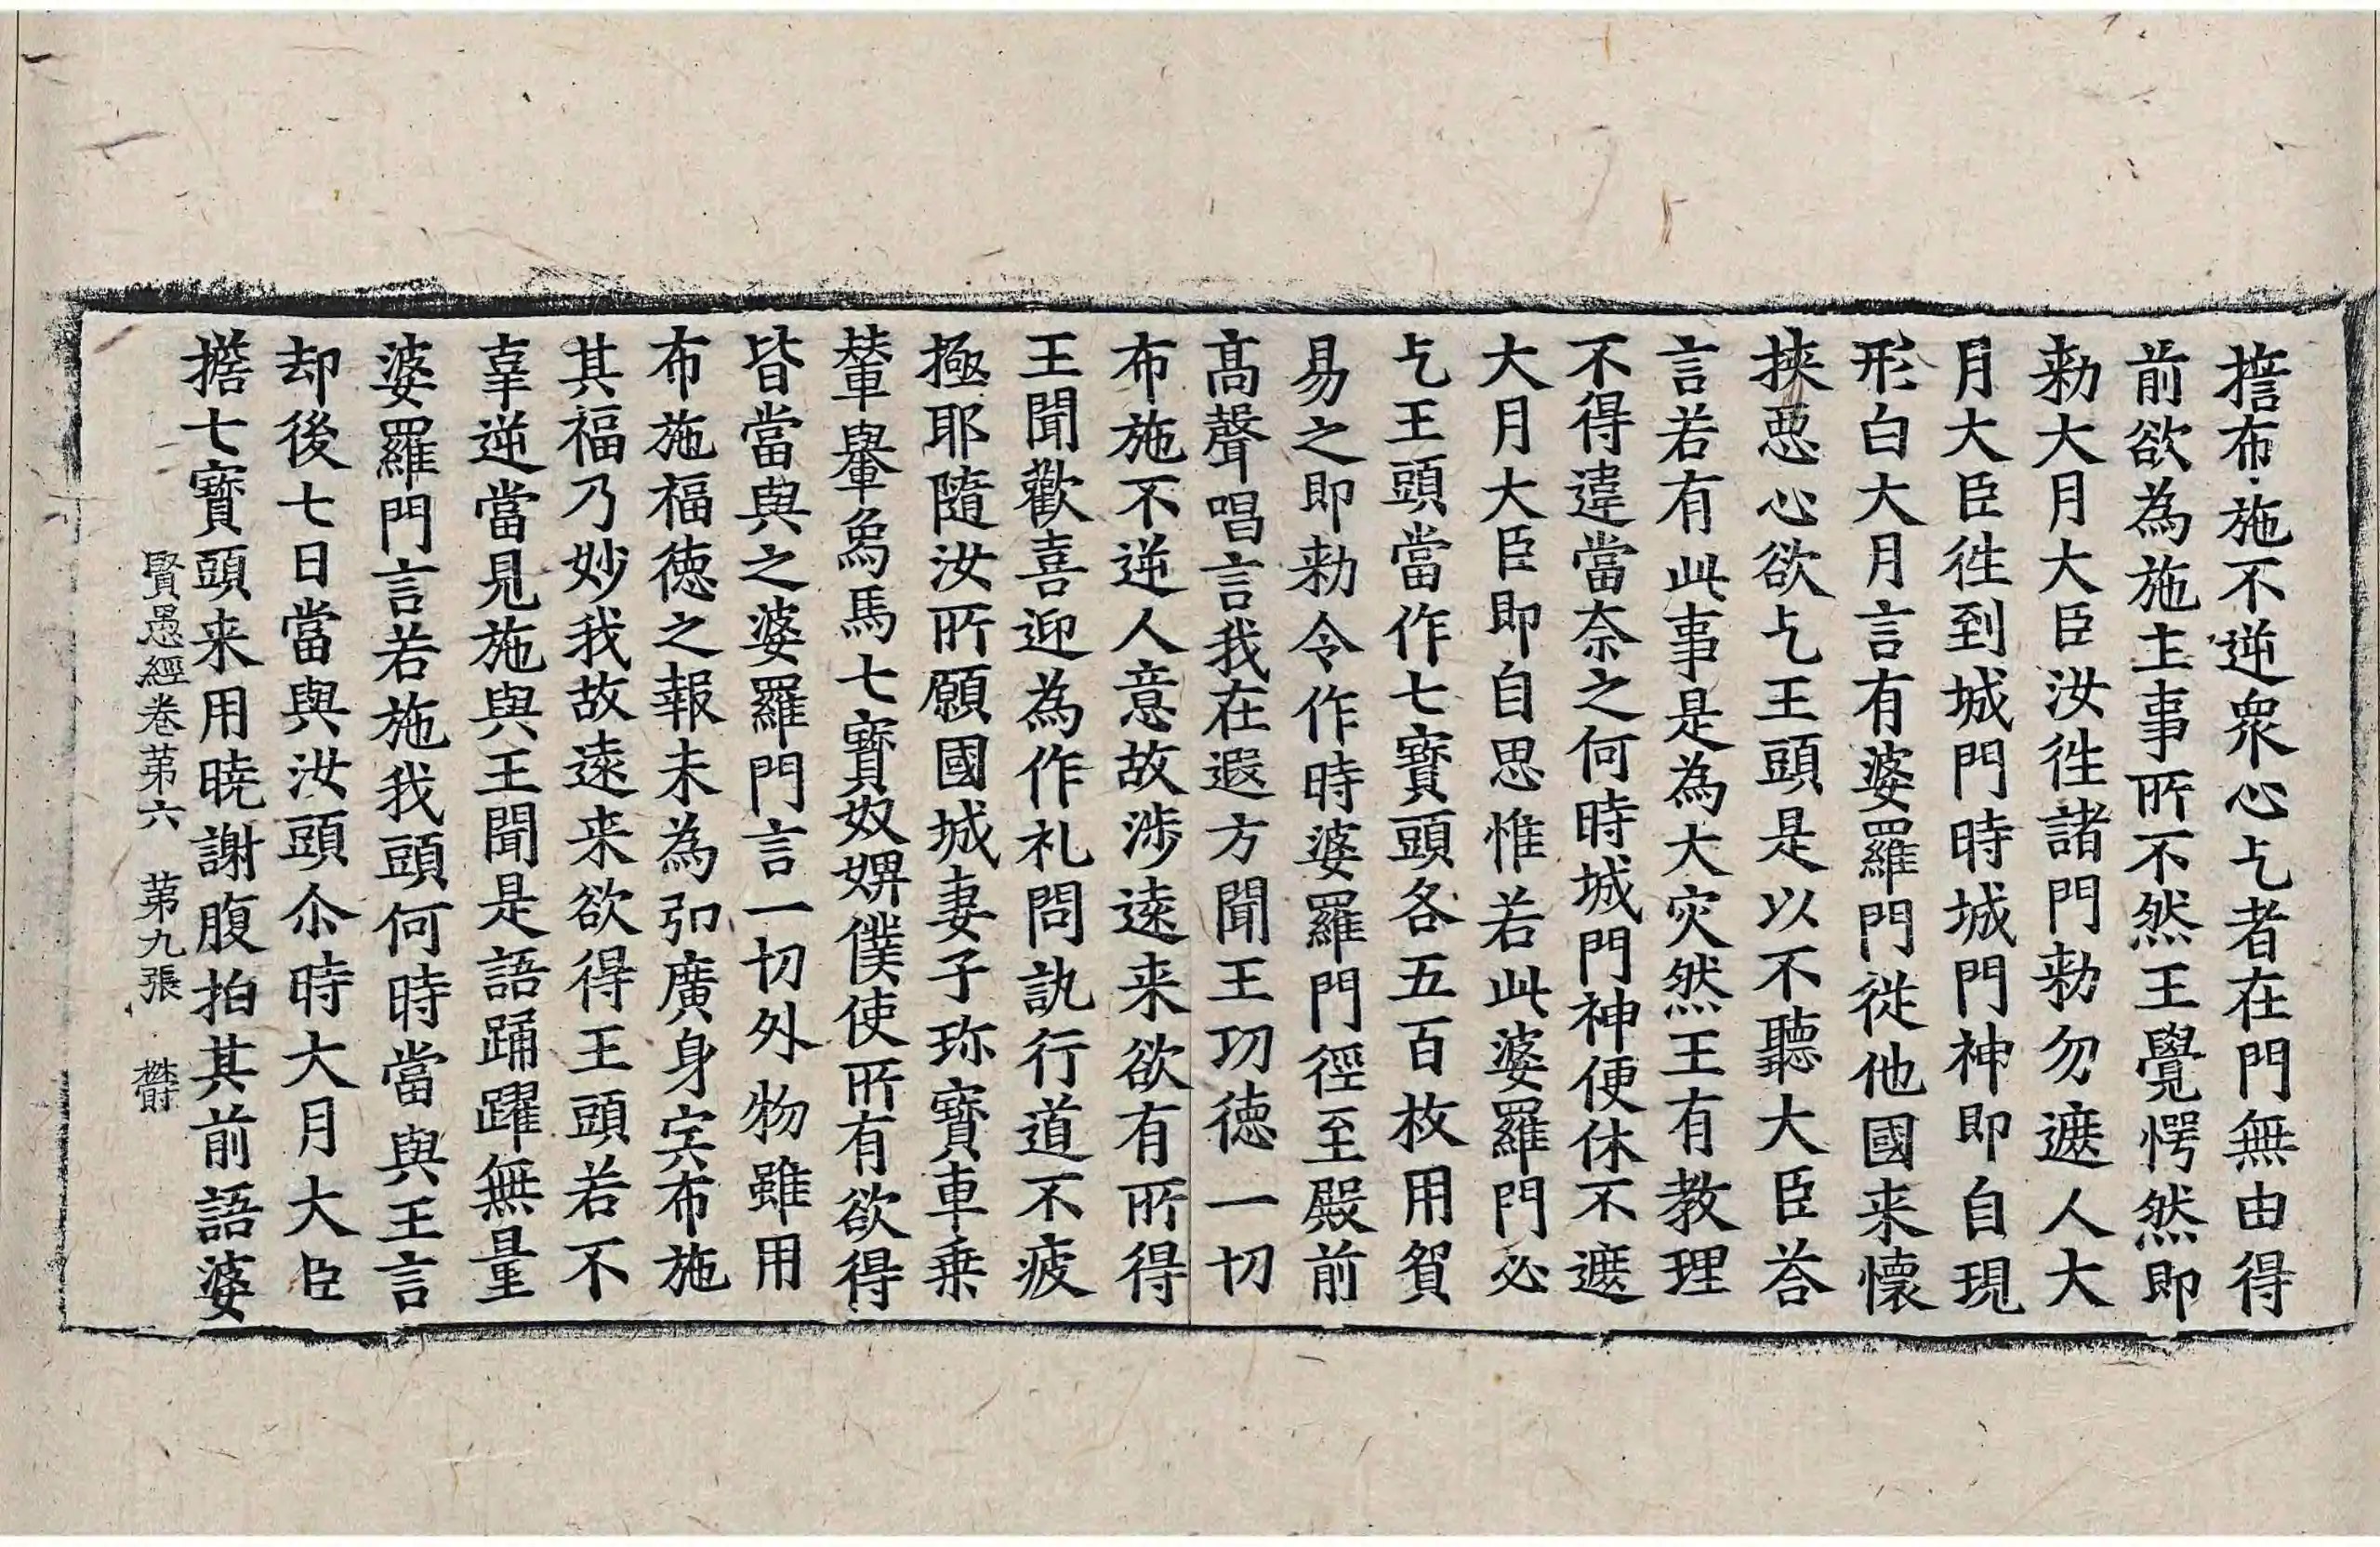 擔布施不逆衆心乞者在門無由得
前欲為施主事所不然王覺愕然即
勑大月大臣汝徃諸門勑勿遮人大
月大臣徃到城門時城門神即自現
形白大月言有婆羅門從他國来懷
挾惡心欲乞王頭是以不聽大臣荅
言若有此事是為大灾然王有教理
不得違當奈之何時城門神便休不遮
大月大臣即自思惟若此婆羅門必
乞王頭當作七寳頭各五百枚用貿
易之即勑令作時婆羅門徑至殿前
髙聲唱言我在遐方聞王功徳一切
布施不逆人意故涉逺来欲有所得
王聞歡喜迎為作礼問訊行道不疲
極耶隨汝所願國城妻子珎寳車乗
輦轝象馬七寳奴婢僕使所有欲得
皆當與之婆羅門言一切外物雖用
布施福徳之報未為弘廣身宍布施
其福乃妙我故逺来欲得王頭若不
辜逆當見施與王聞是語踊躍無量
婆羅門言若施我頭何時當與王言
却後七日當與汝頭尒時大月大臣
擔七寳頭来用曉謝腹拍其前語婆
賢愚經卷苐六　苐九張　欝